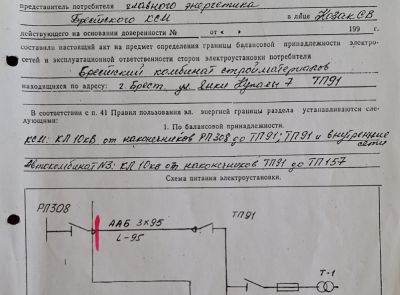 представитель потребителя главного энергетика
Брестского КСМ в лице Козак СВ
действующего на основании доверенности № от « » 199 г.
составили настоящий акт на предмет определения границы балансовой принадлежности электро-
сетей и эксплуатационной ответственности сторон электроустановки потребителя
Брестский комбинат стройматериалов
находящихся по адресу: г. Брест, ул. Янки Купалы 7 ТП91
В соответствии с п. 41 Правил пользования эл. энергией границы раздела устанавливаются сле-
дующими:
1. По балансовой принадлежности.
КСМ: КЛ 10кВ от наконечников РП308 до ТП91; ТП91 и внутренние
сети
Автокомбинат №3: КЛ 10кв от наконечников ТП91 до ТП157
Схема питания электроустановки.
РП308
ААБ 3х95
ТП91
L-95
Т-1